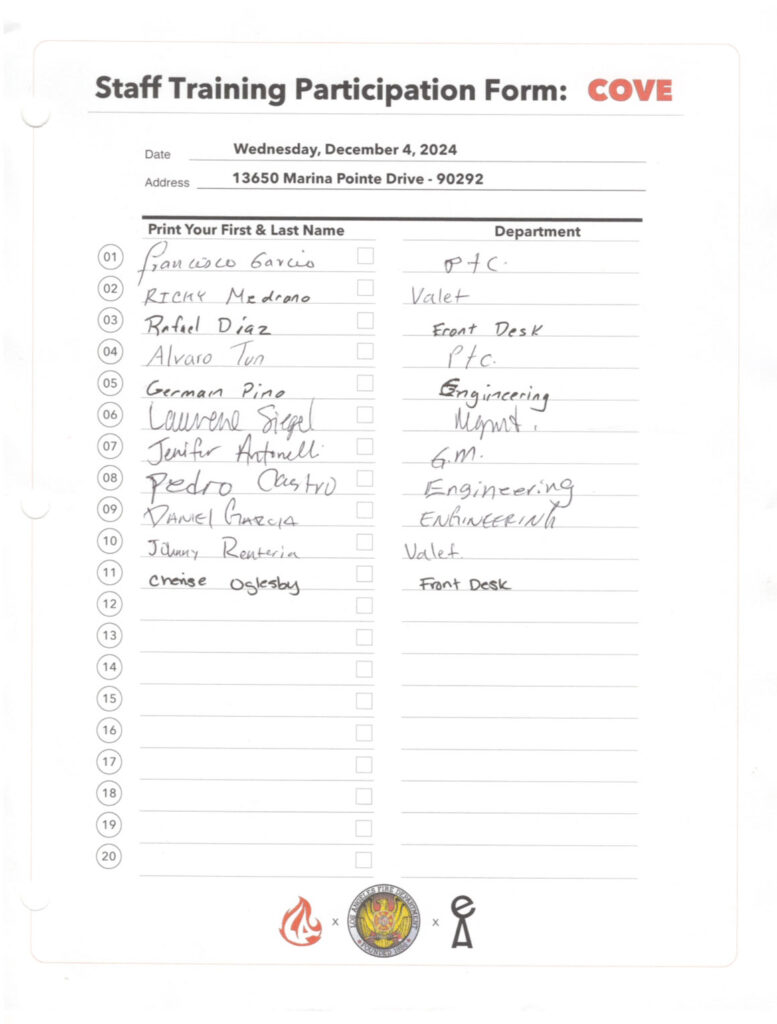 Staff Training Participation Form: COVE
Date Wednesday, December 4, 2024
Address 13650 Marina Pointe Drive - 90292
Print Your First & Last Name Department
01 Francisco Garcia P+C.
02 RICKY Medrano Valet
03 Rafael Díaz Front Desk
04 Alvaro Tun P+C.
05 German Pino Engineering
06 Laurene Siegel Mgmt.
07 Jenifer Antonelli G.M.
08 Pedro Castro Engineering
09 DANIEL GARCIA ENGINEERING
10 Johnny Renteria Valet.
11 Cherise Oglesby Front Desk
12
13
14
15
16
17
18
19
20
LOS ANGELES FIRE DEPARTMENT
FOUNDED 1886
x x